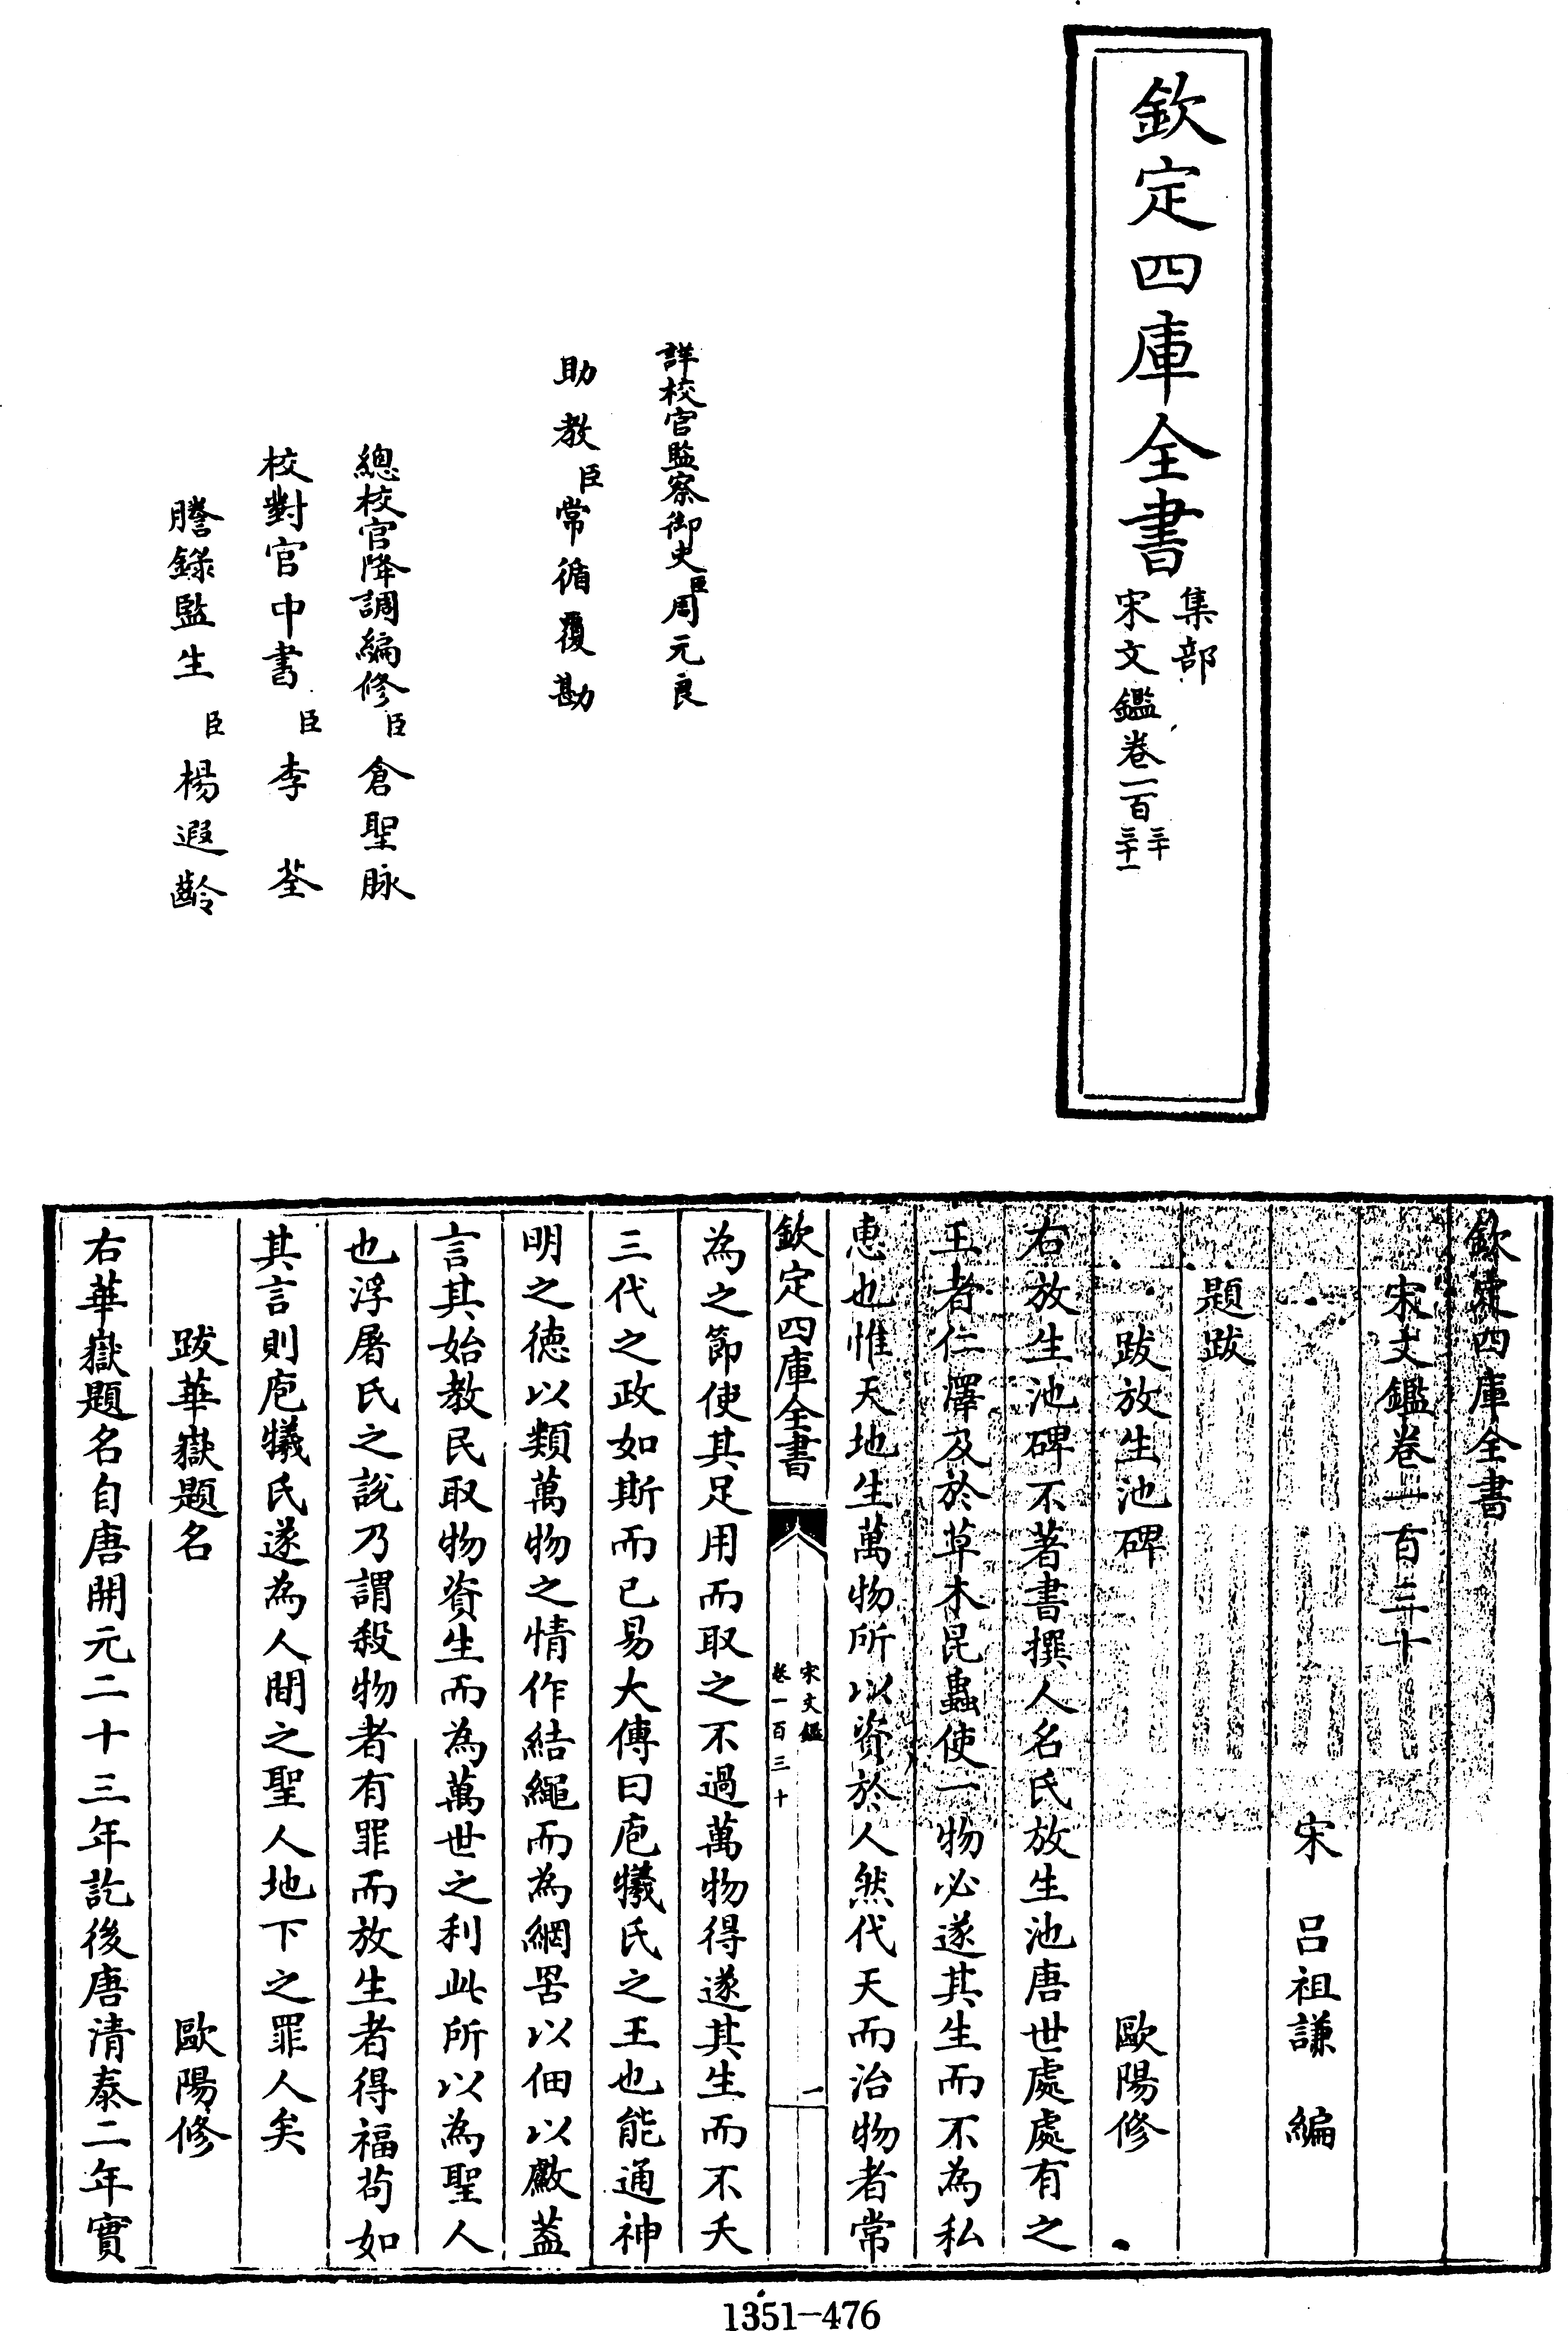 欽定四庫全書
集部
宋文鑑卷一百
三十
三十一
詳校官監察御史臣周元良
助教臣常循覆勘
總校官降調編修臣倉聖脉
校對官中書臣李荃
謄錄監生臣楊遐齡
欽定四庫全書
宋文鑑卷一百三十
宋 呂祖謙 編
題跋
跋放生池碑 歐陽修
右放生池碑不著書撰人名氏放生池唐世處處有之
王者仁澤及於草木昆蟲使一物必遂其生而不為私
恵也惟天地生萬物所以資於人然代天而治物者常
欽定四庫全書
宋文鑑
卷一百三十
一
為之節使其足用而取之不過萬物得遂其生而不夭
三代之政如斯而已易大傳曰庖犧氏之王也能通神
明之德以類萬物之情作結繩而為網罟以佃以漁蓋
言其始教民取物資生而為萬世之利此所以為聖人
也浮屠氏之說乃謂殺物者有罪而放生者得福茍如
其言則庖犧氏遂為人間之聖人地下之罪人矣
跋華嶽題名 歐陽修
右華嶽題名自唐開元二十三年訖後唐清泰二年實
1351-476